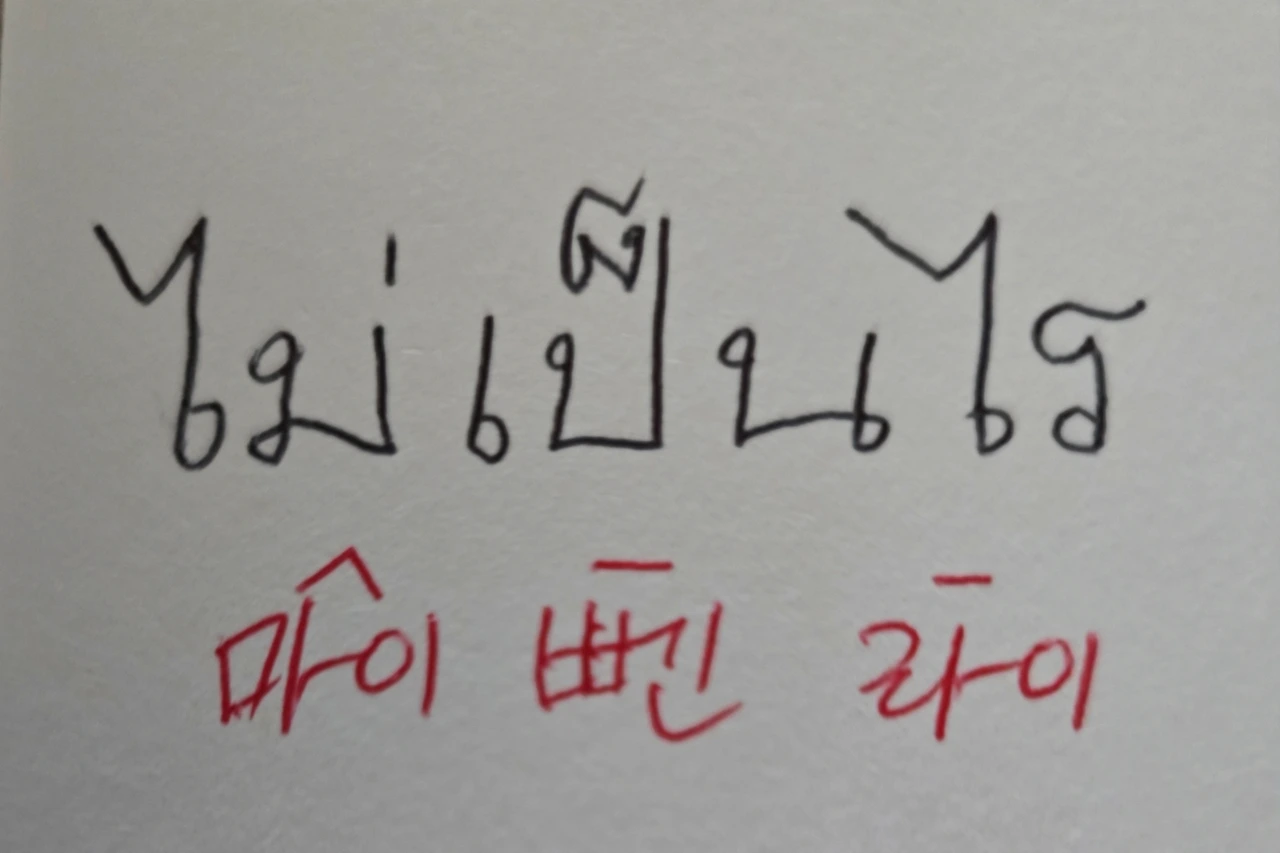 ไม่เป็นไร
마이 뻰 라이